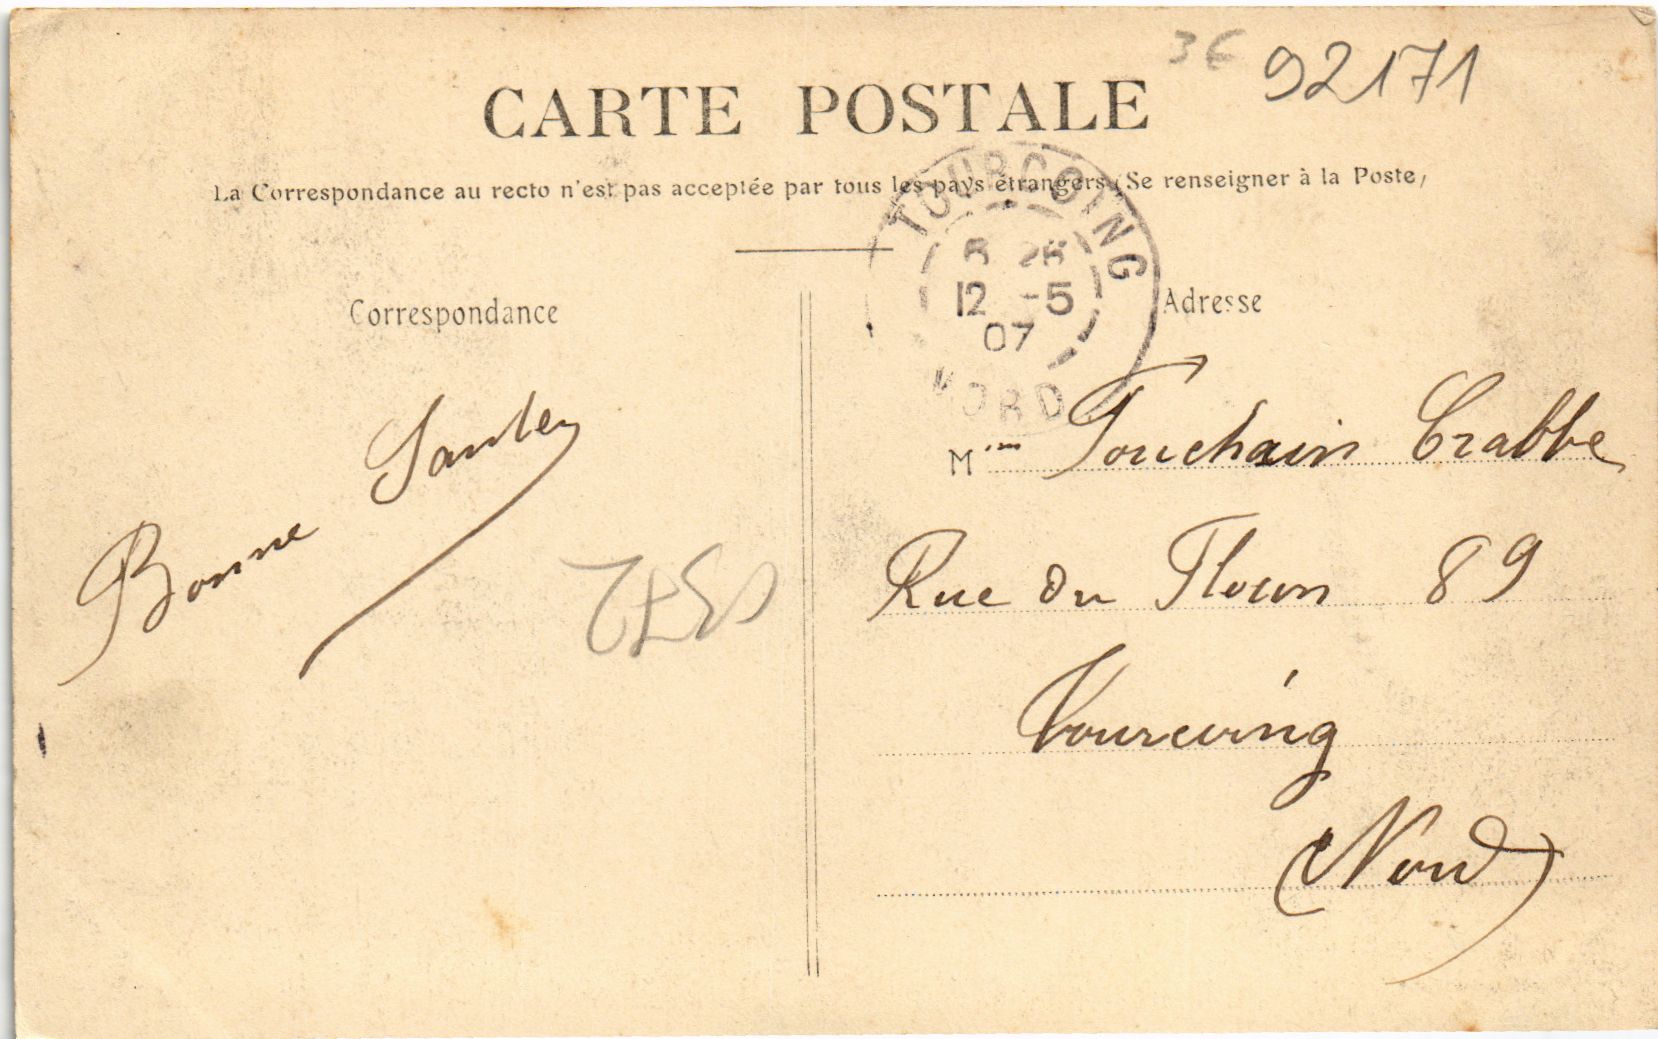 3€ 92171
CARTE POSTALE
La Correspondance au recto n'est pas acceptée par tous les pays étrangers (Se renseigner à la Poste)
TOURCOING
12 -5
07
NORD
Correspondance
Adresse
Bonne Santey
Mme Pouchain Crabbe
Rue du Flocon 89
Tourcoing
(Nord)